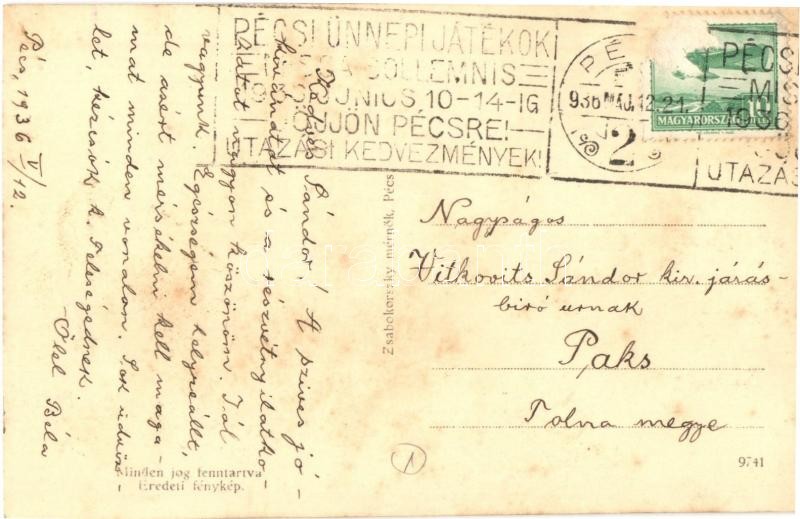 PÉCSI ÜNNEPI JÁTÉKOK
SOLLEMNIS
JUNIUS, 10-14-IG
JÖJJÖN PÉCSRE!
UTAZÁSI KEDVEZMÉNYEK!
PÉCS
936 MÁJ. 12. 21
2
MAGYARORSZÁG
10
PÉCS
UTAZÁS
Pécs, 1936 V/12.
Kedves Sándor! A szives jó-
kivánatát és a részvétnyilatko-
zatot nagyon köszönöm. Jól
vagyunk. Egészségem helyreállt,
de azért mérsékelni kell maga-
mat minden vonalon. Sok üdvöz-
let, kézcsók k. feleségednek.
Ölel Béla
Zsabokorszky mérnök, Pécs
Nagyságos
Vitkovits Sándor kir. járás-
biró urnak
Paks
Tolna megye
1
9741
Minden jog fenntartva
Eredeti fénykép.